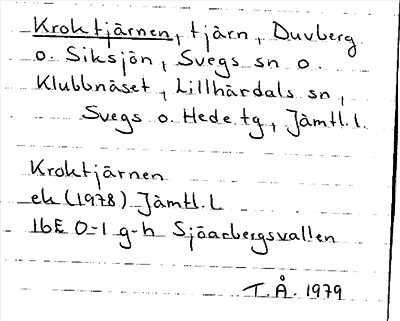 Kroktjärnen, tjärn, Duvberg
o. Siksjön, Svegs sn o.
Klubbnäset, Lillhärdals sn,
Svegs o. Hede tg, Jämtl. l.
Kroktjärnen
ek (1978) Jämtl. L
16E 0-1 g-h Sjöarbergsvallen
T.Å. 1979